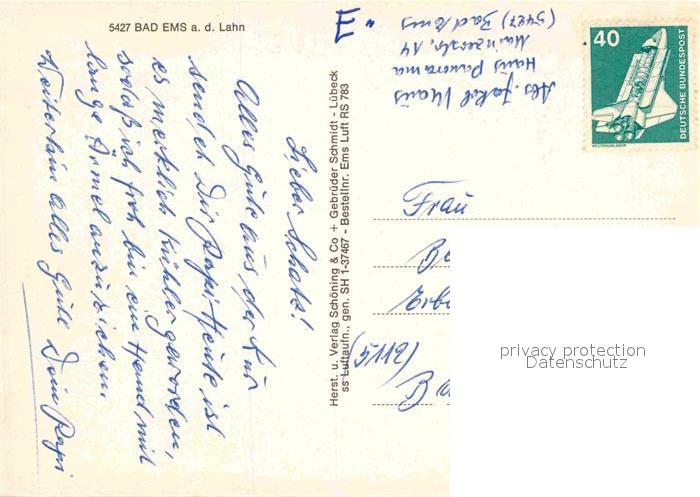 5427 BAD EMS a. d. Lahn
Lieber Schatz!
Alles Gute aus der Kur
sendet Dir Papi. Heute ist
es merklich kühler geworden,
sodaß ich froh bin ein Hemd mit
lange Ärmel anzuziehen.
Weiterhin alles Gute Dein Papi
Herst. u. Verlag Schöning & Co + Gebrüder Schmidt - Lübeck
ss Luftaufn., gen. SH 1-37467 - Bestellnr. Ems Luft RS 783
Abs. Jakob
Haus Panorama
Mainzerstr. 14
(5427) Bad Ems
40
DEUTSCHE BUNDESPOST
WELTRAUMLABOR
Frau
privacy protection
Datenschutz